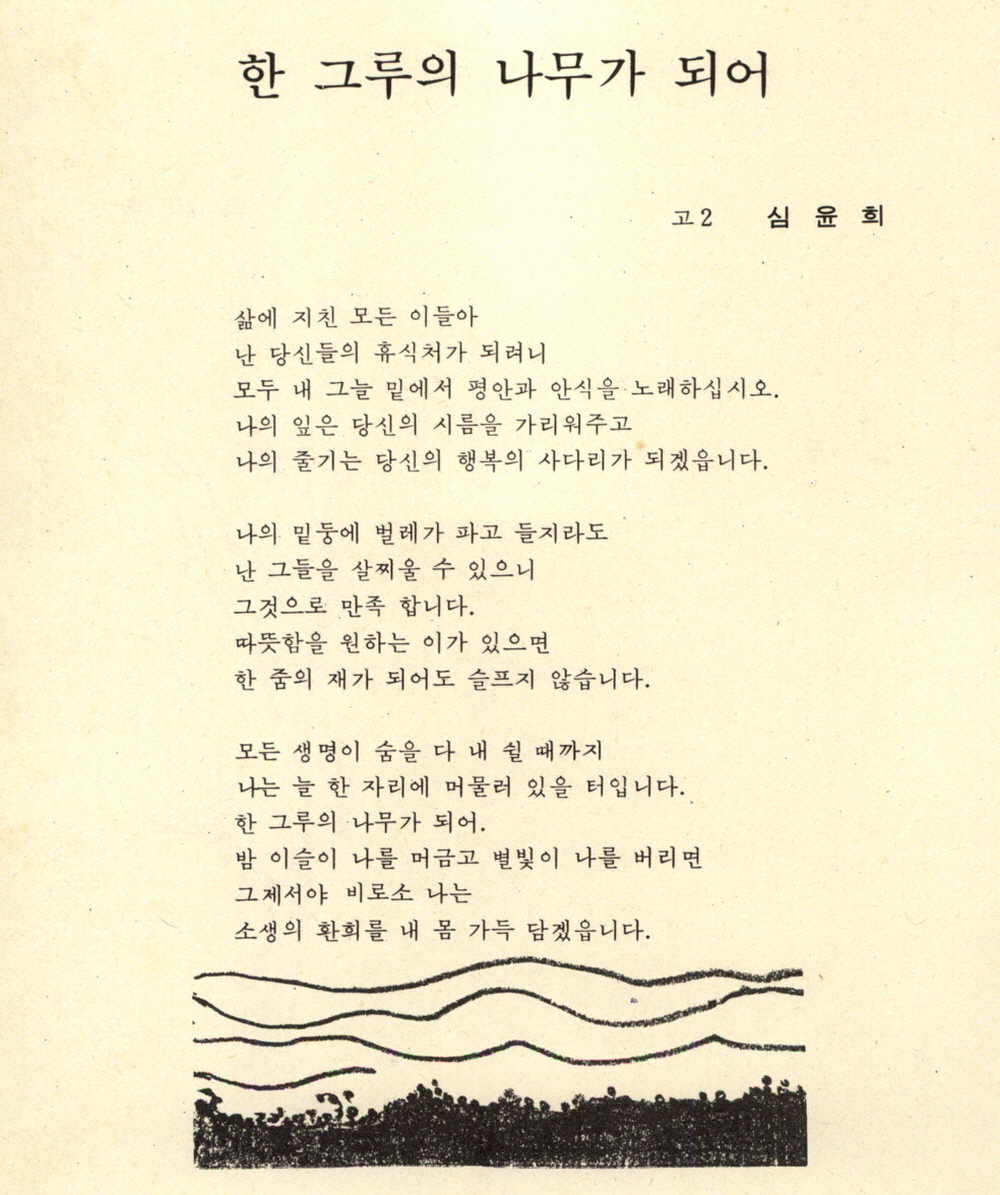 한 그루의 나무가 되어
고2 심윤희
삶에 지친 모든 이들아
난 당신들의 휴식처가 되려니
모두 내 그늘 밑에서 평안과 안식을 노래하십시오.
나의 잎은 당신의 시름을 가리워주고
나의 줄기는 당신의 행복의 사다리가 되겠읍니다.
나의 밑둥에 벌레가 파고 들지라도
난 그들을 살찌울 수 있으니
그것으로 만족 합니다.
따뜻함을 원하는 이가 있으면
한 줌의 재가 되어도 슬프지 않습니다.
모든 생명이 숨을 다 내 쉴 때까지
나는 늘 한 자리에 머물러 있을 터입니다.
한 그루의 나무가 되어.
밤 이슬이 나를 머금고 별빛이 나를 버리면
그제서야 비로소 나는
소생의 환희를 내 몸 가득 담겠읍니다.